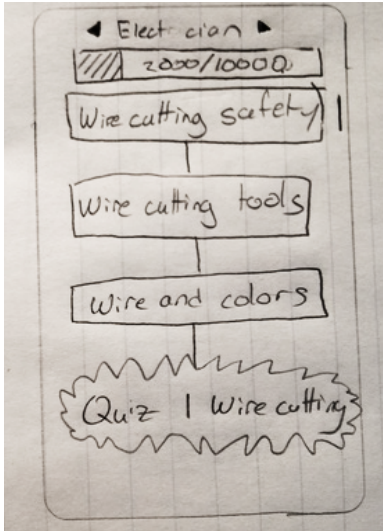 ◀ Elect cian ▶
2000/10000
Wire cutting safety
Wire cutting tools
Wire and colors
Quiz | Wire cutting